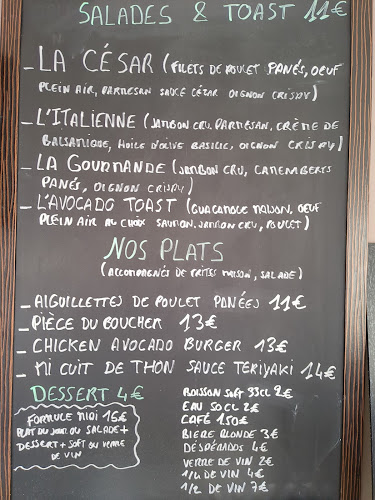 SALADES & TOAST 11€
_ LA CÉSAR (FILETS DE POULET PANÉS, OEUF
PLEIN AIR, PARMESAN SAUCE CÉSAR OIGNON CRISPY)
_ L'ITALIENNE (JAMBON CRU, PARMESAN, CRÈME DE
BALSAMIQUE, HUILE D'OLIVE BASILIC, OIGNON CRISPY)
_ LA GOURMANDE (JAMBON CRU, CAMEMBERTS
PANÉS, OIGNON CRISPY)
_ L'AVOCADO TOAST (GUACAMOLE MAISON, OEUF
PLEIN AIR AU CHOIX SAUMON, JAMBON CRU, POULET)
NOS PLATS
(ACCOMPAGNÉS DE FRITES MAISON, SALADE)
_ AIGUILLETTES DE POULET PANÉES 11€
_ PIÈCE DU BOUCHER 13€
_ CHICKEN AVOCADO BURGER 13€
_ MI CUIT DE THON SAUCE TERIYAKI 14€
DESSERT 4€
FORMULE MIDI 15€
PLAT DU JOUR OU SALADE +
DESSERT + SOFT OU VERRE
DE VIN
BOISSON SOFT 33CL 2€
EAU 50CL 2€
CAFÉ 1.50€
BIERE BLONDE 3€
DÉSPÉRADOS 4€
VERRE DE VIN 2€
1/4 DE VIN 4€
1/2 DE VIN 7€